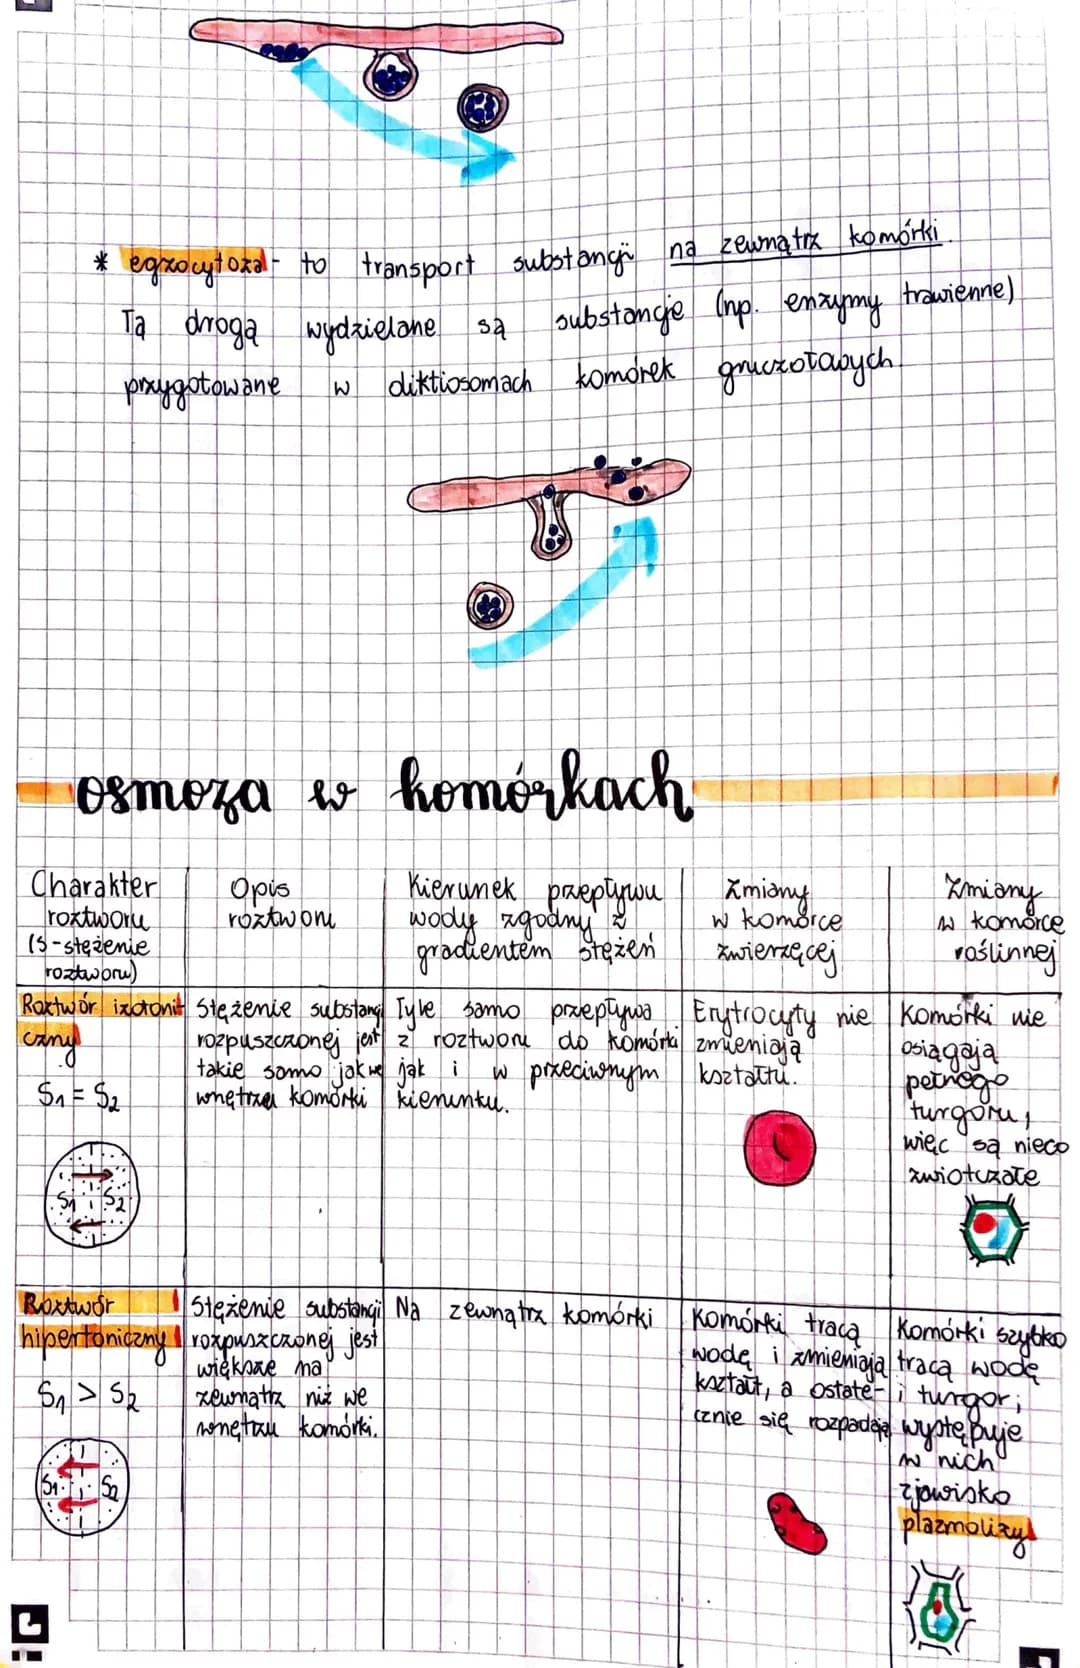 * egzocytoza - to transport substancji na zewnątrz komórki.
Tą drogą wydzielane są substancje (np. enzymy trawienne)
przygotowane w diktiosomach komórek gruczołowych.
osmoza w komórkach
Charakter
roztworu
(S-stężenie
roztworu)
Opis
roztworu
Kierunek przepływu
wody zgodny z
gradientem stężeń
Zmiany
w komórce
zwierzęcej
Zmiany
w komórce
roślinnej
Roztwór izotoni-
czny
S₁ = S₂
S₁ S₂
Stężenie substancji
rozpuszczonej jest
takie samo jak we
wnętrzu komórki
Tyle samo przepływa
z roztworu do komórki
jak i w przeciwnym
kierunku.
Erytrocyty nie
zmieniają
kształtu.
Komórki nie
osiągają
pełnego
turgoru,
więc są nieco
zwiotczałe
Roztwór
hipertoniczny
S₁ > S₂
S₁ S₂
Stężenie substancji
rozpuszczonej jest
większe na
zewnątrz niż we
wnętrzu komórki.
Na zewnątrz komórki
Komórki tracą
wodę i zmieniają
kształt, a ostate-
cznie się rozpadają
Komórki szybko
tracą wodę
i turgor;
występuje
w nich
zjawisko
plazmolizy